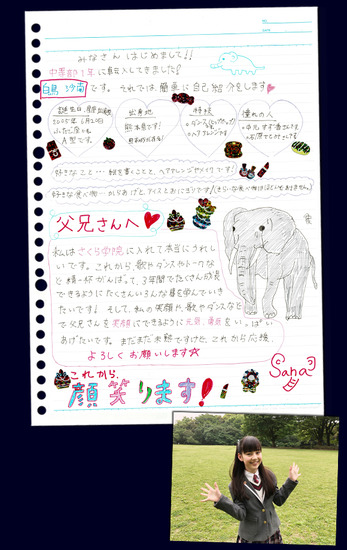 NO.
DATE
みなさん はじめまして!!
中等部1年に転入してきました!
白鳥 沙南です。それでは、簡単に自己紹介をします
誕生日、星座、血液型
6月20日
ふたご座
A型です。
出身地
熊本県です!
特技
ダンス
ヘアアレンジです
憧れの人
中元すず香さん
好きなこと…絵を書くこと、ヘアアレンジやメイクです!
好きな食べ物…からあげと、アイスとおにぎりです
父兄さんへ
私はさくら学院に入れて本当にうれし
いです。これから、歌やダンスやトークな
ど精一杯がんばって、3年間でたくさん成長
できるようにたくさんいろんな事を学んでいき
たいです! そして、私の笑顔や、歌やダンスなど
で父兄さんを笑顔にできるように元気、勇気をいっぱい
あげたいです。まだまだ未熟ですけど、これから応援、
よろしくお願いします☆
Sana
これから、
顔笑ります!